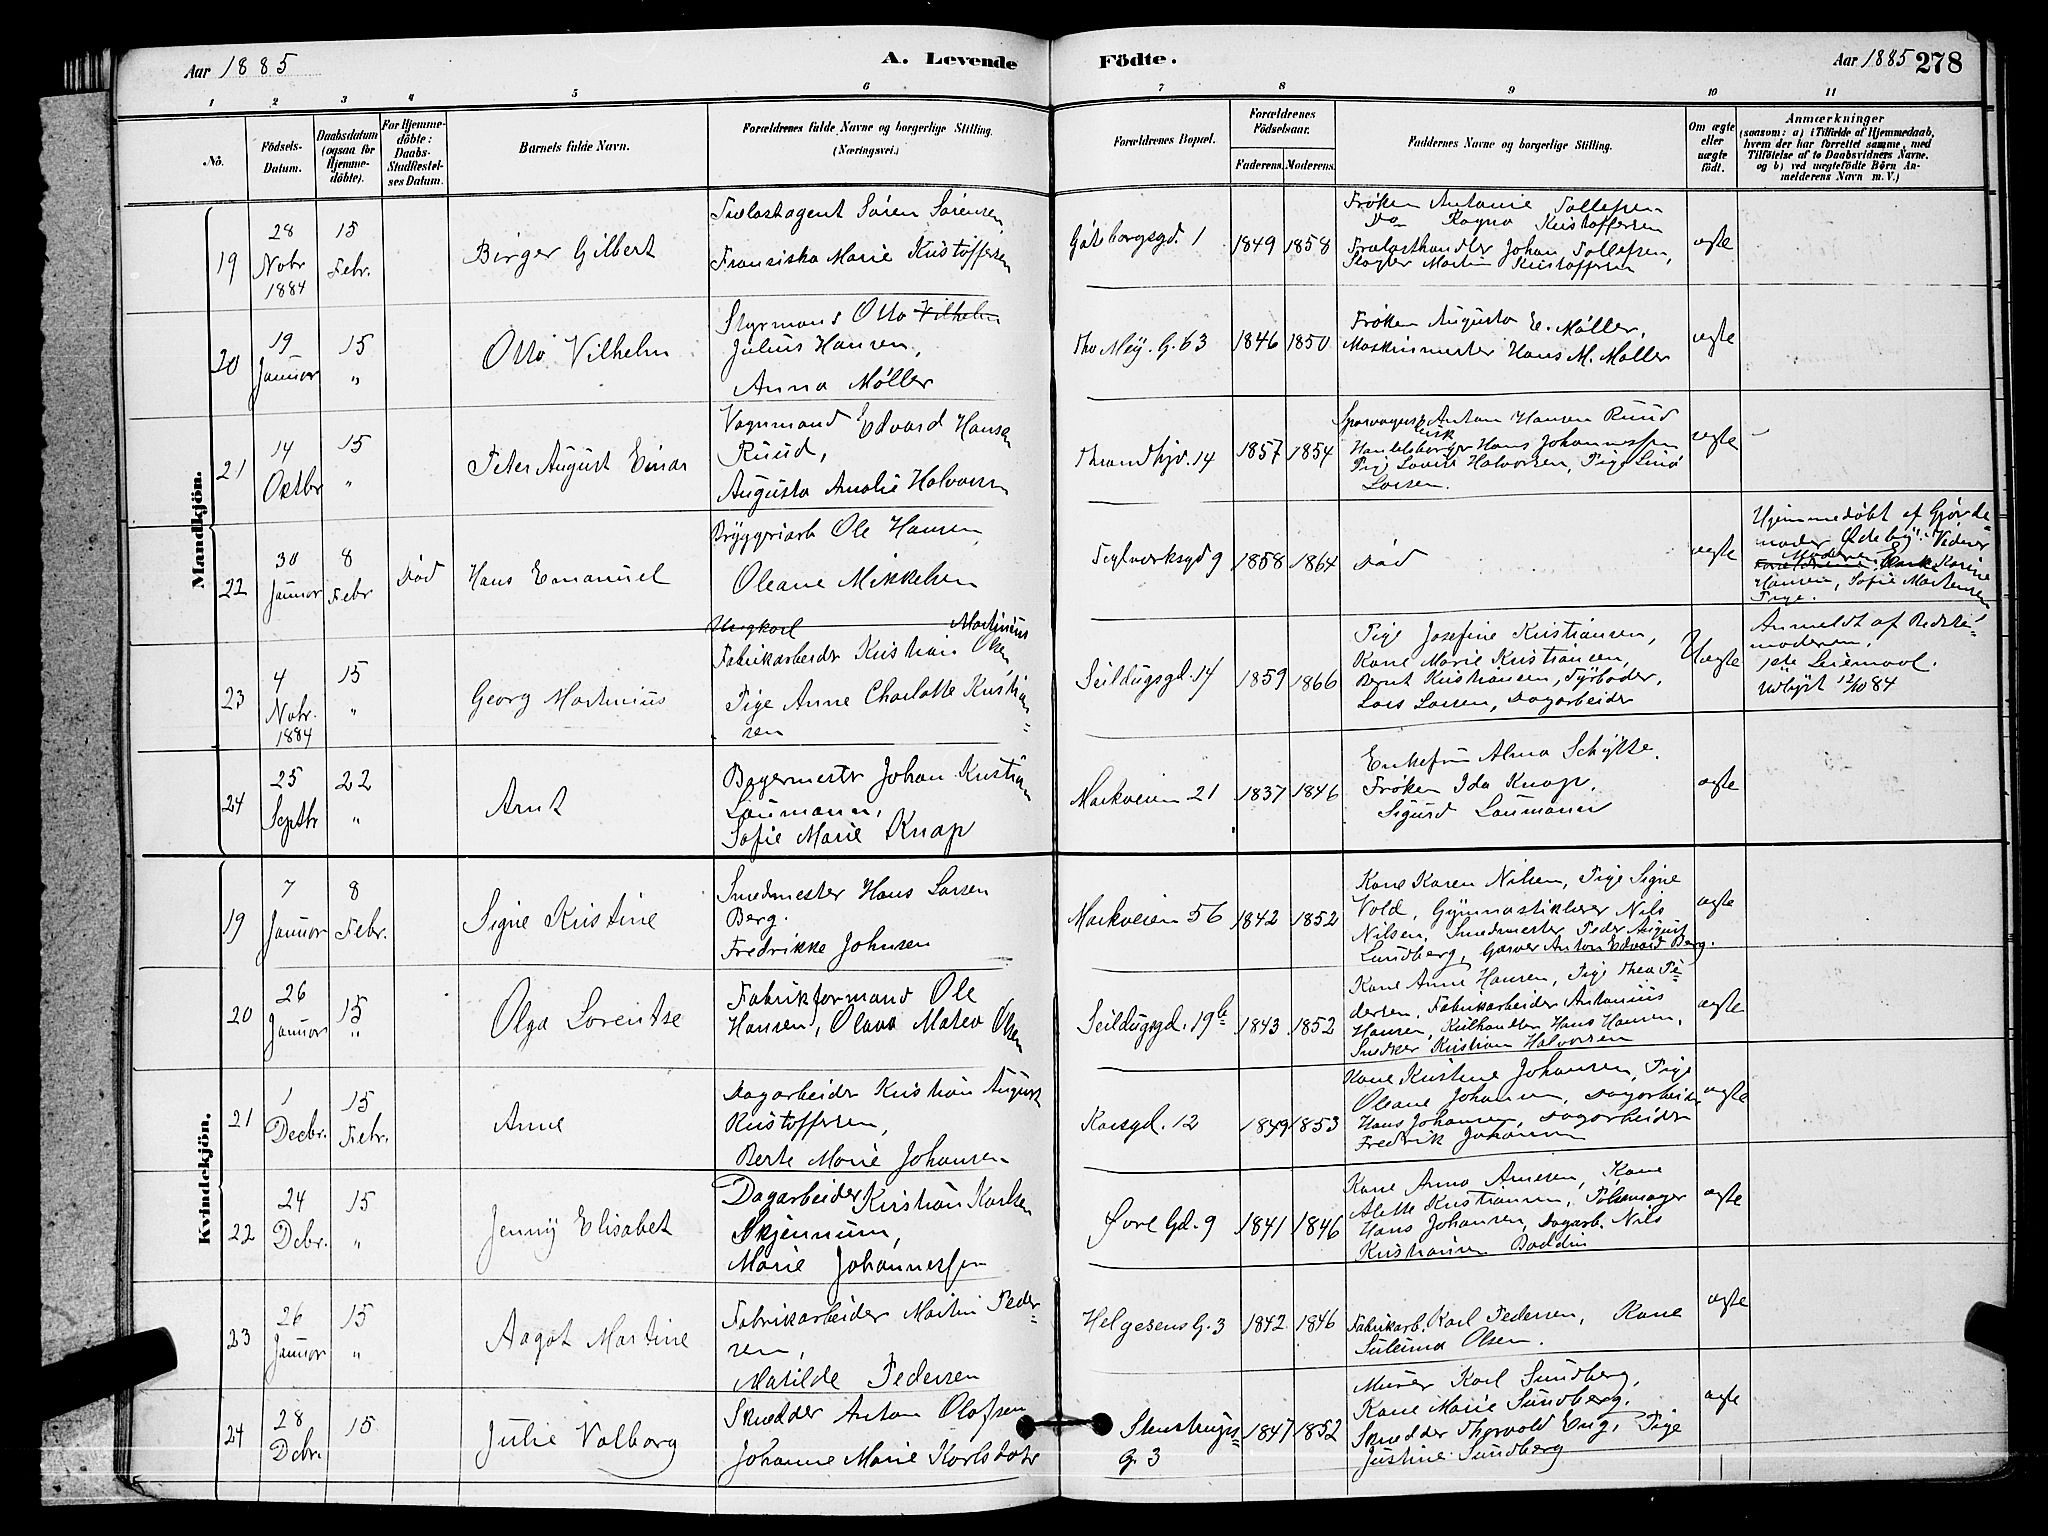 Aar 1885
A. Levende Födte.
Aar 1885 278
1 2 3 4 5 6 7 8 9 10 11
No.
Födsels-
Datum.
Daabsdatum
(ogsaa for
Hjemme-
döbte).
For Hjemme-
döbte:
Daabs-
Stadfæstel-
ses Datum.
Barnets fulde Navn.
Forældrenes fulde Navne og borgerlige Stilling.
(Næringsvei.)
Forældrenes Bopæl.
Forældrenes
Födselsaar.
Faderens. Moderens.
Faddernes Navne og borgerlige Stilling.
Om ægte
eller
uægte
födt.
Anmærkninger
(saasom: a) i Tilfælde af Hjemmedaab,
hvem der har forrettet samme, med
Tilföielse af to Daabsvidners Navne.
og b) ved uægtefödte Börn An-
melderens Navn m. V.)
Mandkjön.
19
28
Nobr
1884
15
Febr.
Birger Gilbert
Sören Sörensen,
Franziska Marie Kristoffersen
Göteborgsgd. 1
1849 1858
Frøken Antonie Tollefsen
Do Ragna Kristoffersen
Johan Tollefsen,
Slagter Martin Kristoffersen
ægte
20
19
Januar
15
"
Otto Vilhelm
Styrmand Otto Vilhelm
Julius Hansen,
Anna Møller
Tho Mey. G. 63
1846 1850
Frøken Augusta E. Møller,
Maskinmester Hans M. Møller
ægte
21
14
Octbr
15
"
Peter August Einar
Vognmand Edvard Hansen
Ruud,
Augusta Amalie Halvorsen
Throndhjv. 14
1857 1854
Anton Hansen Ruud
Handelsborger Hans Johannessen
Pige Lovise Halvorsen, Pige Lina
Larsen.
ægte
22
30
Januar
8
Febr
Död
Hans Emanuel
Bryggeriarb Ole Hansen,
Oleane Mikkelsen
Teglverksgd 9
1858 1864
Död
ægte
Hjemmedøbt af Gjorde-
moder Ødeby. Vidner
Moderen, Karine
Hansen, Sofie Martensen
Pige.
23
4
Nobr.
1884
15
"
Georg Martinius
Ungkarl Martinius
Fabrikarbeider Kristian Olsen,
Pige Anne Charlotte Kristian-
sen
Seildugsgd. 14
1859 1866
Pige Josefine Kristiansen,
Kone Marie Kristiansen,
Bernt Kristiansen, Fyrbøder,
Lars Larsen, Dagarbeider
Uægte
Anmeldt af Bedste-
moderen.
1ste Leiermaal.
Udlyst 12/10 84
24
25
Septbr
22
"
Arnt
Bagermester Johan Kristian
Laumann,
Sofie Marie Knap
Markveien 21
1837 1846
Enkefru Alma Schytte.
Frøken Ida Knap,
Sigurd Laumann
ægte
Kvindekjön.
19
7
Januar
8
Febr.
Signe Kristine
Smedmester Hans Larsen
Berg.
Fredrikke Johnsen
Markveien 56
1842 1852
Kone Karen Nilsen, Pige Signe
Vold, Gymnastiklærer Nils
Nilsen, Smedmester Peder August
Lundberg, Garver Anton Edvard Berg.
ægte
20
26
Januar
15
"
Olga Lorentse
Fabrikformand Ole
Hansen, Olava Matea Olsen
Seildugsgd. 19b
1843 1852
Kone Anne Hansen, Pige Thea Pe-
dersen, Fabrikarbeider Antonius
Hansen, Kulhandler Hans Hansen,
Snedker Kristian Halvorsen
ægte
21
1
Decbr.
15
Febr.
Anne
Dagarbeider Kristian August
Kristoffersen,
Berte Marie Johansen
Korsgd. 12
1849 1853
Kone Kristine Johansen, Pige
Oleane Johansen, Dagarbeider
Hans Johansen, Dagarbeider
Fredrik Johansen
ægte
22
24
Debr.
15
"
Jenny Elisabet
Dagarbeider Kristian Karlsen
Skjennum,
Marie Johannessen
Øvre Gd. 9
1841 1846
Kone Anna Arnesen, Kone
Alette Kristiansen,
Hans Johansen, Dagarb. Nils
Kristiansen Boddin
ægte
23
26
Januar
15
"
Aagot Martine
Fabrikarbeider Martin Peder-
sen,
Matilde Pedersen
Helgesens G. 3
1842 1846
Fabrikarb. Karl Pedersen, Kone
Olsen.
ægte
24
28
Debr.
15
Julie Valborg
Skrædder Anton Olafsen
Johanne Marie Karlsdatr
Stenstrups-
G. 3
1847 1852
Murer Karl Sundberg,
Kone Marie Sundberg,
Skrædder Thorvald Eng, Pige
Justine Sundberg
ægte